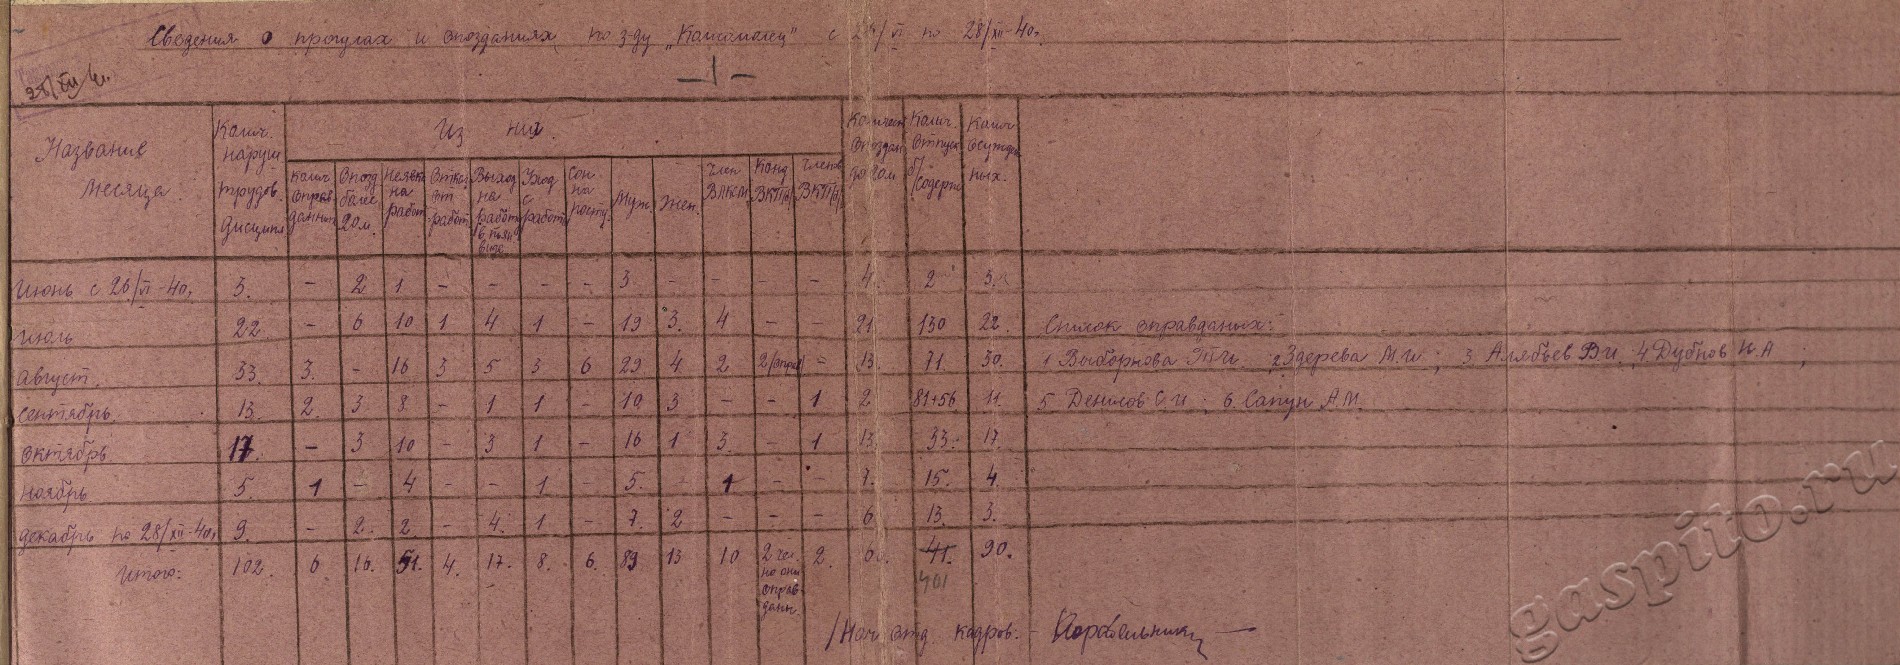 Сведения о прогулах и опозданиях по з-ду „Комсомолец" с 26/VI по 28/XII-40г.
28/XII 40г.
-1-
Название месяца
Колич. наруш. трудов. дисципл.
Из них
Колич. оправданных
Опозд более 20м.
Неявка на работ.
Отказ от работ.
Выход на работу в пьян виде
Уход с работы
Сон на посту.
Муж.
Жен.
Член ВЛКСМ
Канд ВКП/б/
Членов ВКП/б/
опоздан до 20м
Колич. отпуск б/содерж
Колич осужден ных.
Июнь с 26/VI-40г. 3. - 2 1 - - - - 3. - - - - 4. 2 3.
Июль 22 - 6 10 1 4 1 - 19 3. 4 - - 21 130 22. Список оправданых:
Август. 33. 3. - 16 3 5 3 6 29 4 2 2/оправ/ = 13. 71. 30. 1 Выборнова Т.И. 2 Здерева М.И.; 3. Алябьев В.И., 4 Дубнов Н.А;
Сентябрь. 13. 2. 3 8 - 1 1 - 10 3 - - 1 2 81+56 11. 5 Денисов С.И. 6. Сапун А.М.
Октябрь 17. - 3 10 - 3 1 - 16 1 3 - 1 13. 33. 17.
Ноябрь 5. 1 - 4 - - 1 - 5. - 1 - - 15. 4.
Декабрь по 28/XII-40г. 9. - 2. 2. - 4. 1 - 7. 2 - - - 6 13. 3.
Итого: 102. 6 16. 51. 4. 17. 8. 6. 89 13 10 2 чел. но они оправданн. 2. 41. 90.
401
/Нач отд. кадров. -
gaspito.ru